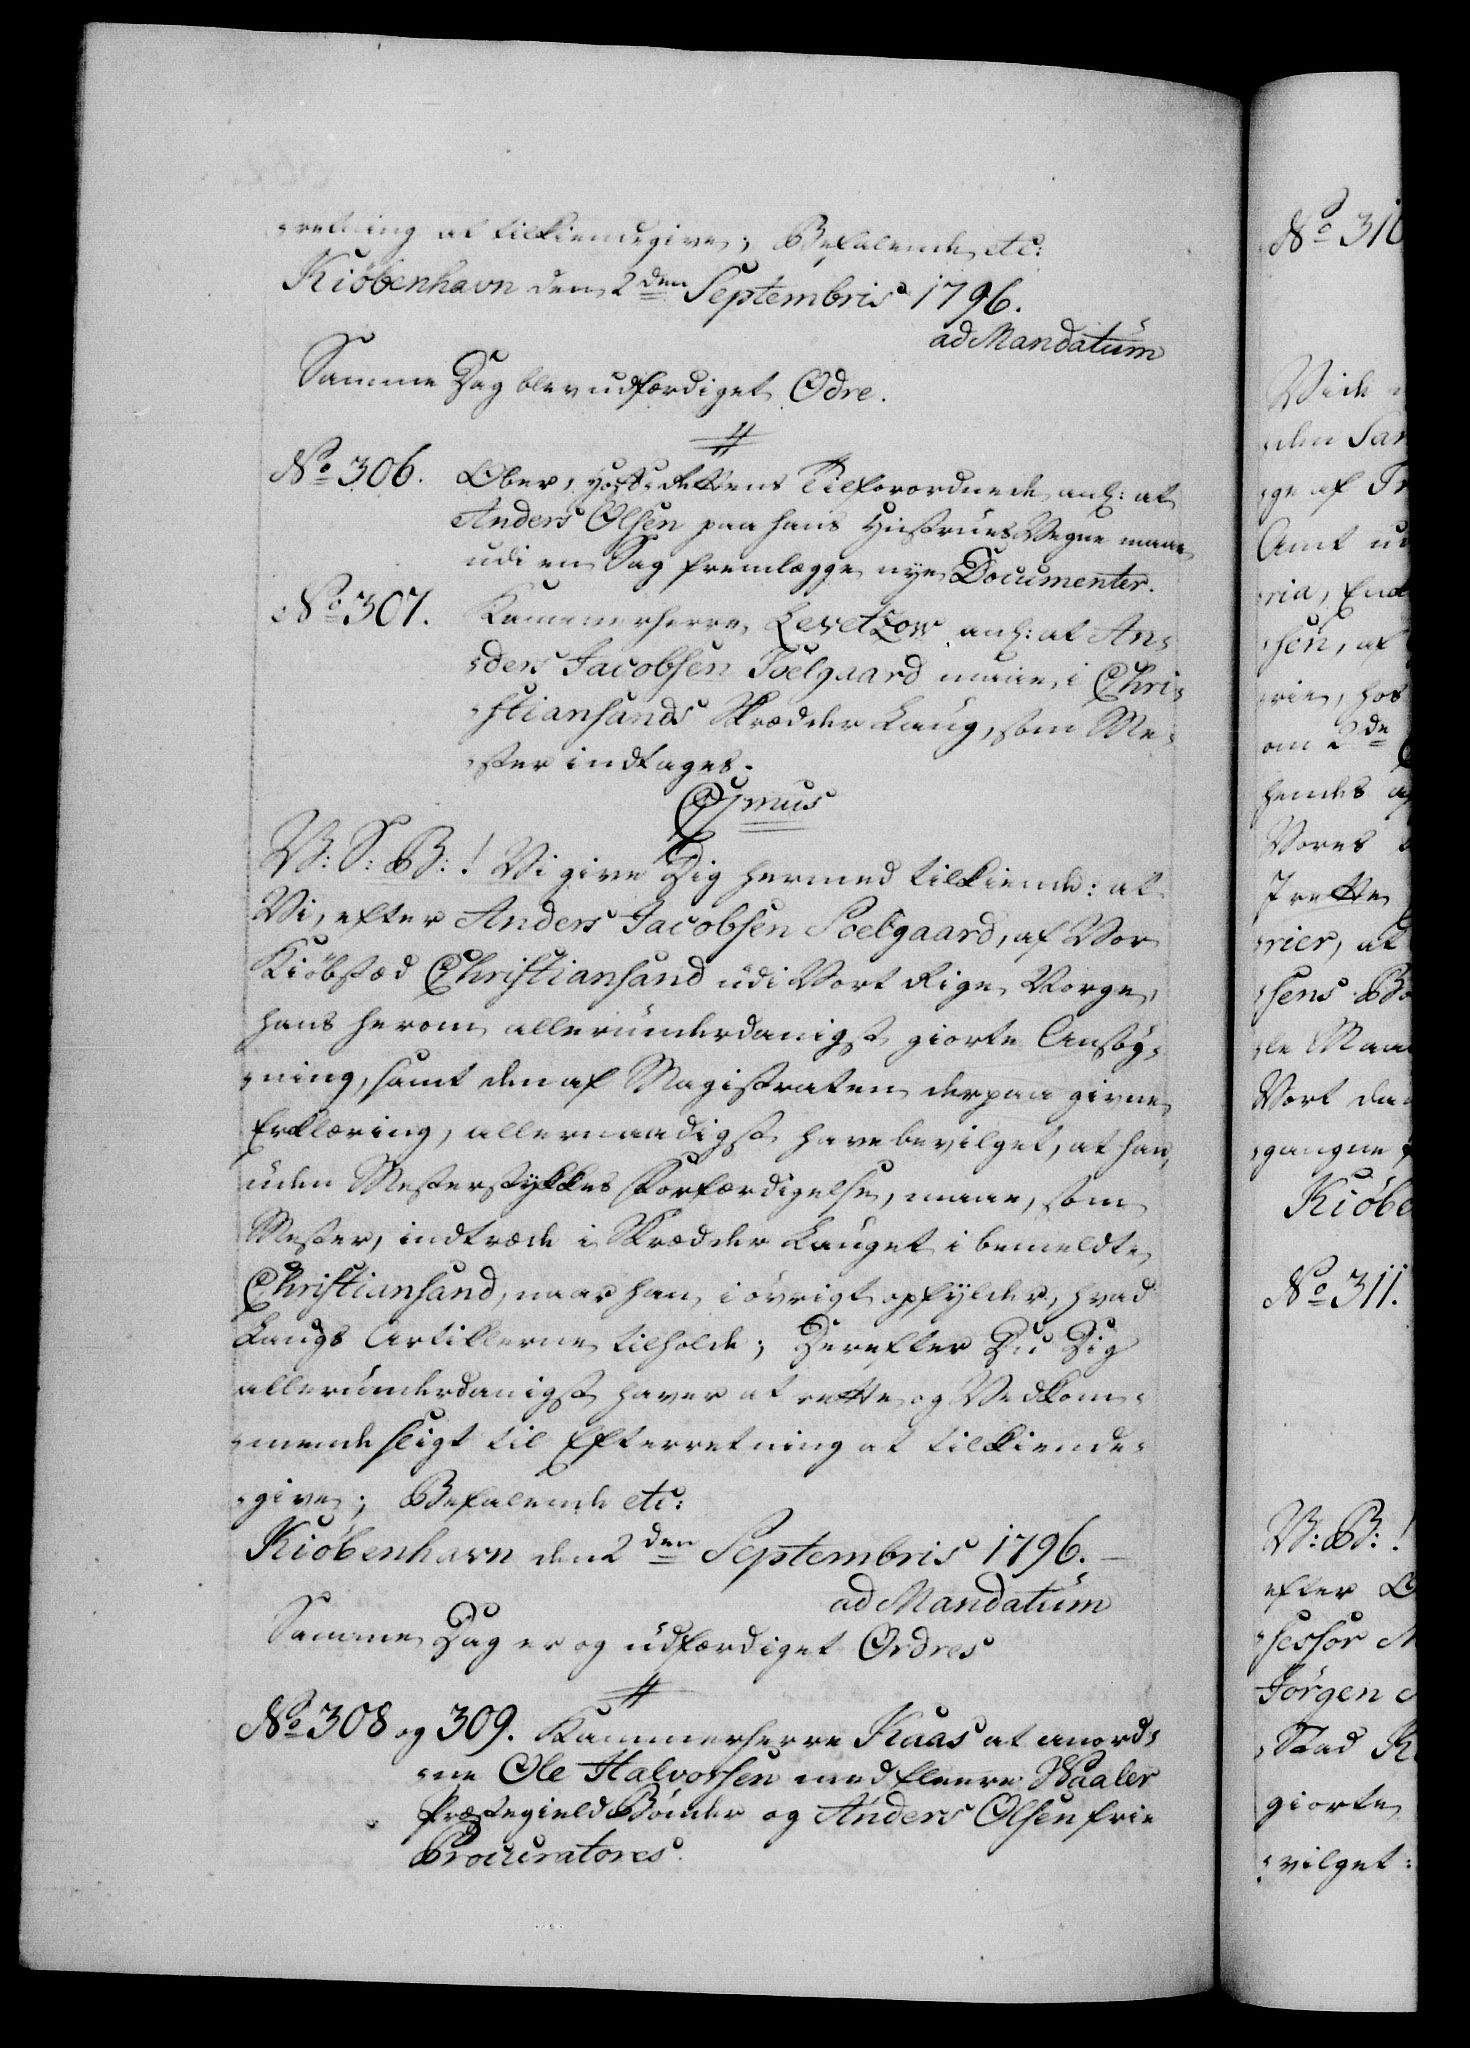 retning at tilkiendegive; Befalende etc:
Kiöbenhavn den 2den Septembris 1796.
ad Mandatum
Samme Dag blev udfærdiget Odre.
No 306. Ober-Hof-Rettens Tilforordnede anl: at
Anders Olsen paa hans Hustrues Vegne maae
udi en Sag fremlægge nye Documenter.
No 307. Kammerherre Levetzow anl: at An-
ders Jacobsen Soelgaard maae i Chri-
stiansands Skrædder Laug, som Me-
ster indtages.
V: S: B: ! Vi give Dig hermed tilkiende: at
Vi, efter Anders Jacobsen Soelgaard, af Vor
Kiöbstæd Christiansand udi Vort Rige Norge,
hans herom allerunderdanigst giorte Ansög-
ning, samt den af Magistraten derpaa givne
Erklæring, allernaadigst have bevilget, at han,
uden Mesterstykkes Forfærdigelse, maae, som
Mester, indtræde i Skrædder Lauget i bemeldte
Christiansand, naar han i övrigt opfylder, hvad
Laugs Artiklerne tilholde; Derefter Du Dig
allerunderdanigst haver at rette og Vedkom-
mende sligt til Efterretning at tilkiende-
give; Befalende etc:
Kiöbenhavn den 2den Septembris 1796.
ad Mandatum
Samme Dag er og udfærdiget Ordres
No 308 og 309. Kammerherre Kaas at anord-
ne Ole Halvorsen med fleere Waaler
Præstegields Bönder og Anders Olsen frie
Procuratores.
No 310
Vort
giorte
vilget:
No 311.